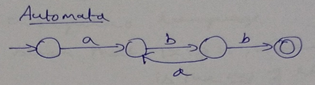 Automata
a b b
a